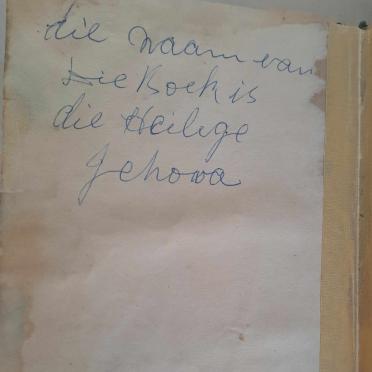 die naam van
Die Boek is
die Heilige
Jehova